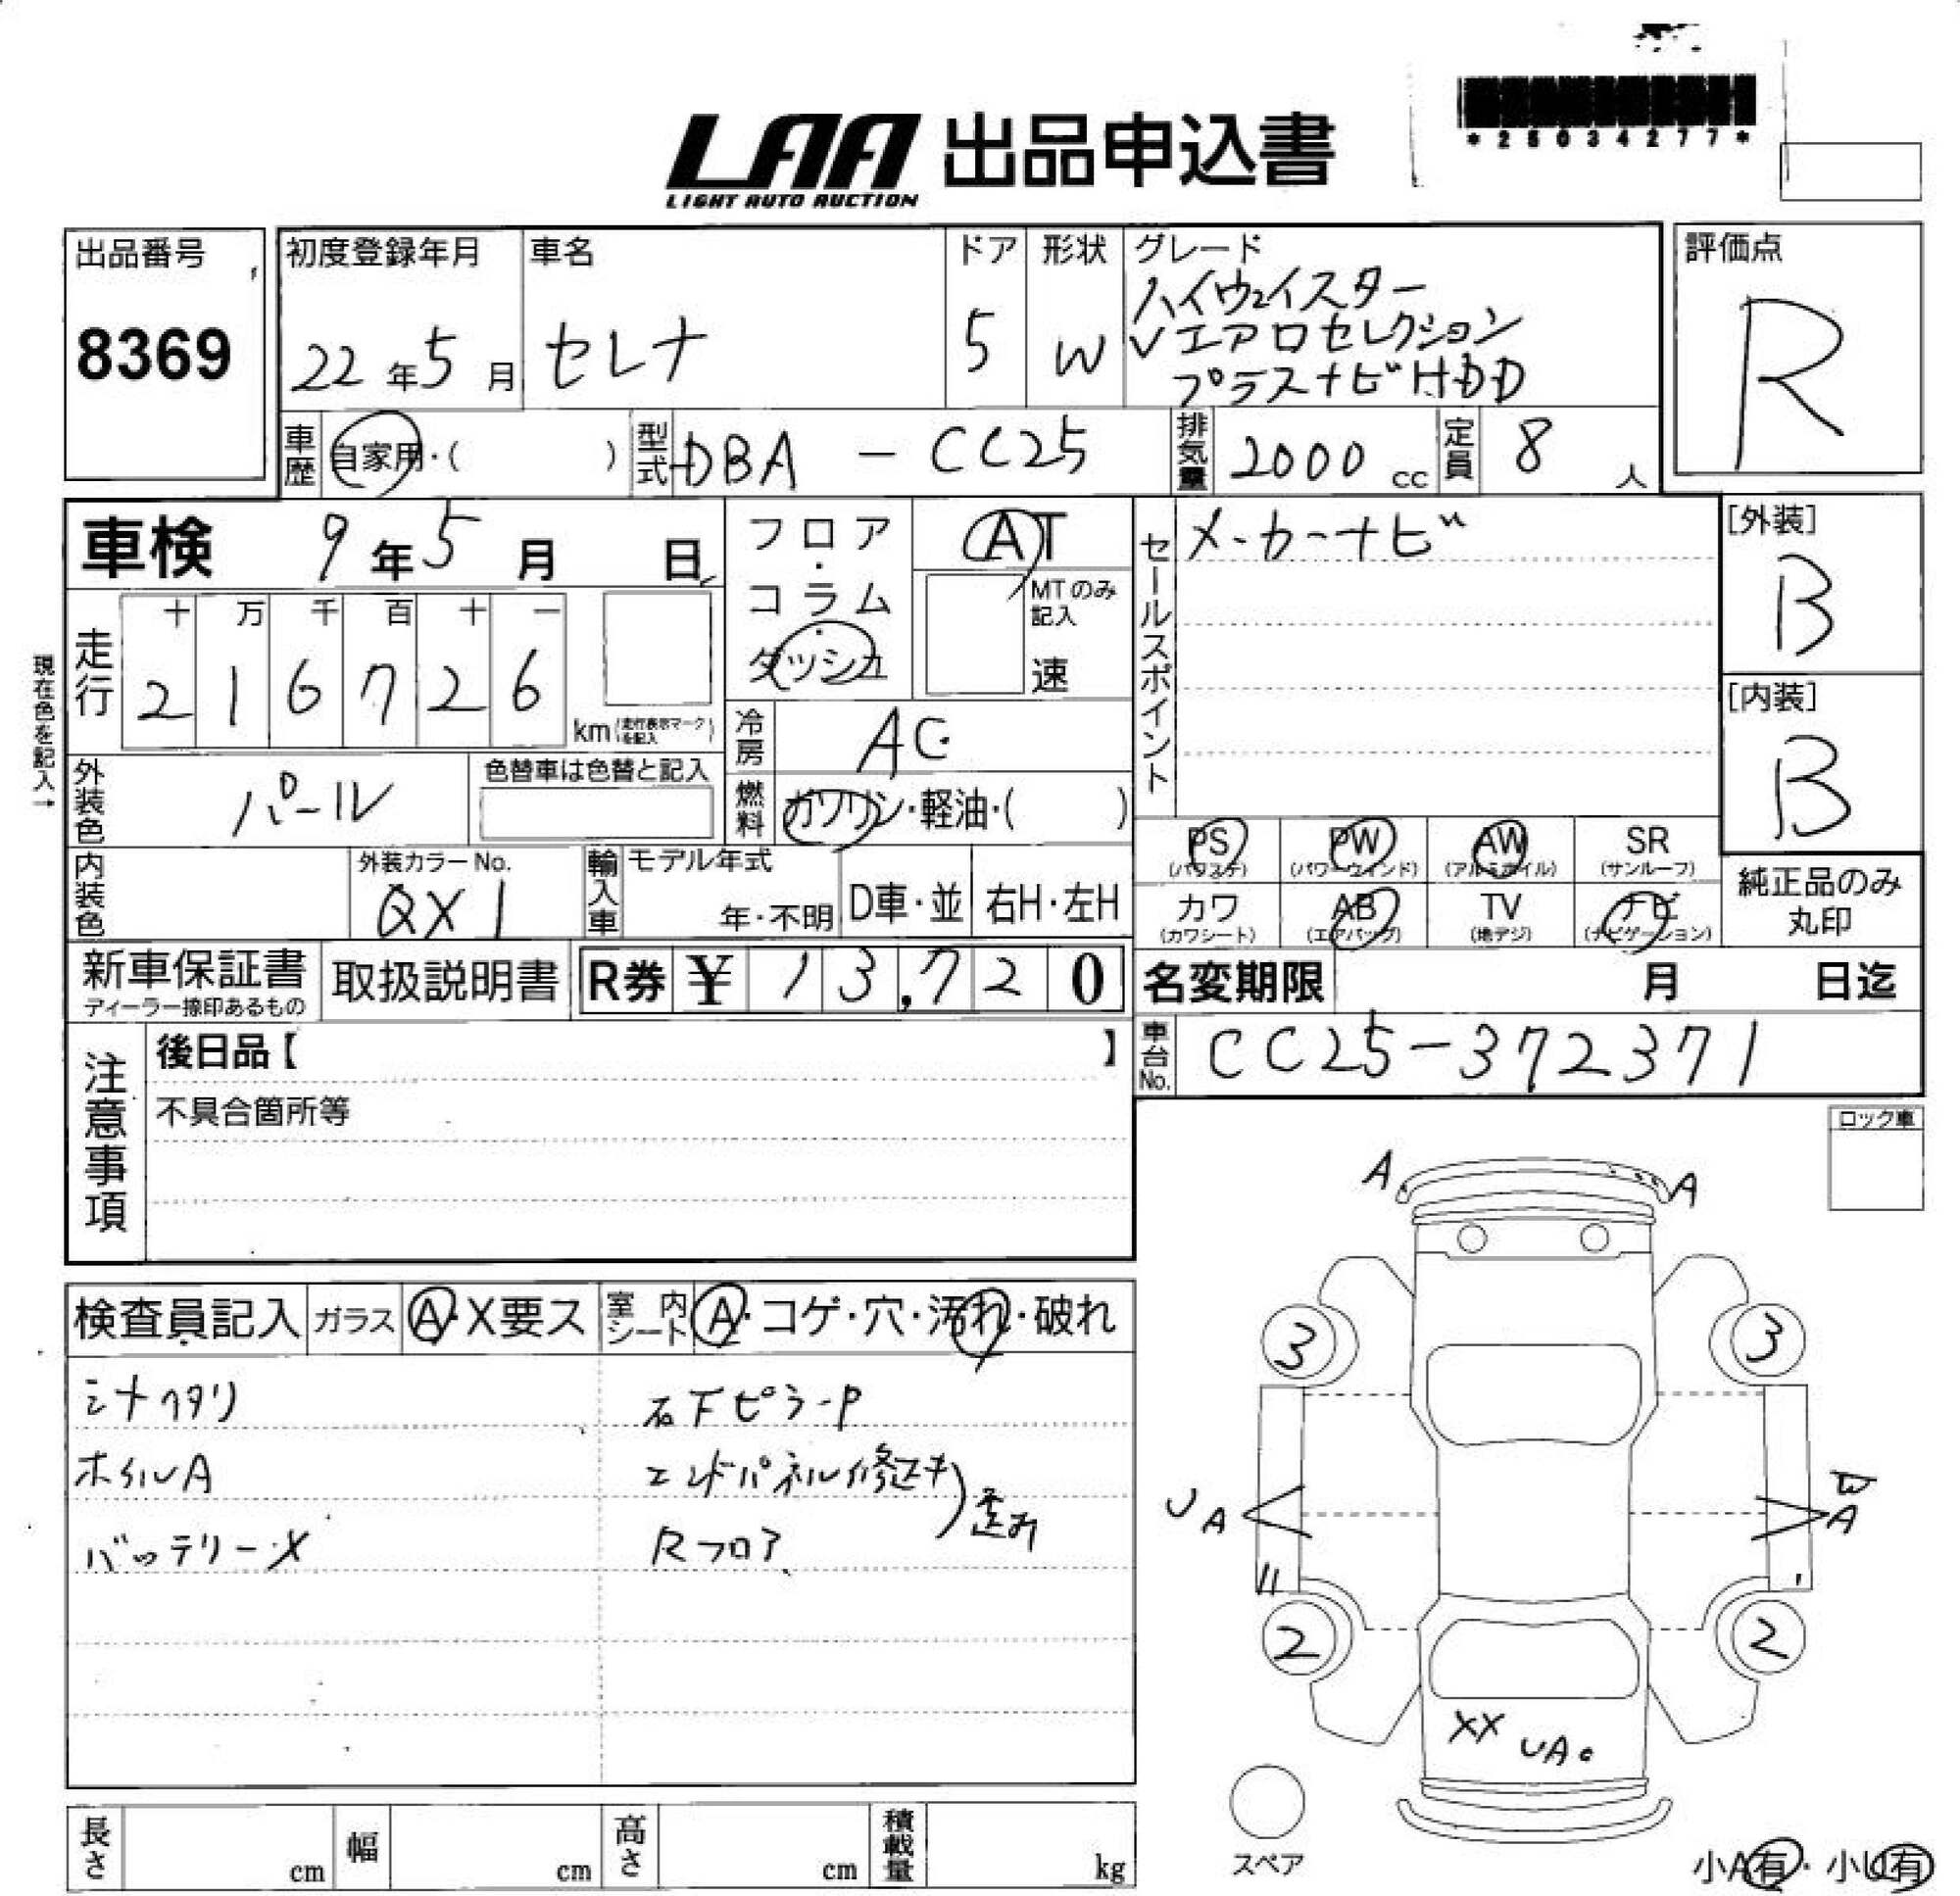 *25034277*
LAA 出品申込書
LIGHT AUTO AUCTION
出品番号
8369
初度登録年月
22年5月
車名
セレナ
ドア
5
形状
W
グレード
ハイウェイスター
Vエアロセレクション
プラスナビHDD
評価点
R
車歴 自家用・( )
型式 DBA - CC25
排気量 2000 cc
定員 8 人
車検 9年5月 日
フロア・コラム・ダッシュ
AT
MTのみ記入
速
セールスポイント
メーカーナビ
[外装]
B
[内装]
B
現在色を記入→
走行
十 万 千 百 十 一
2 1 6 7 2 6
km(走行表示マークを記入)
冷房 AC
燃料 ガソリン・軽油・( )
外装色 パール
色替車は色替と記入
内装色
外装カラーNo.
QX1
輸入車
モデル年式
年・不明
D車・並
右H・左H
PS
(パワステ)
PW
(パワーウィンド)
AW
(アルミホイル)
SR
(サンルーフ)
カワ
(カワシート)
AB
(エアバッグ)
TV
(地デジ)
ナビ
(ナビゲーション)
純正品のみ
丸印
新車保証書
ディーラー捺印あるもの
取扱説明書
R券 ¥ 13,720
名変期限 月 日迄
車台No. CC25-372371
注意事項
後日品【 】
不具合箇所等
ロック車
検査員記入
ガラス A・X要ス
室内シート A・コゲ・穴・汚れ・破れ
シナヘタリ
ホイルA
バッテリーX
右下ピラーP
エンドパネル修正キ
Rフロア
歪み
A
A
3
3
U A
A
2
2
XX UA
スペア
小A有・小U有
長さ cm
幅 cm
高さ cm
積載量 kg